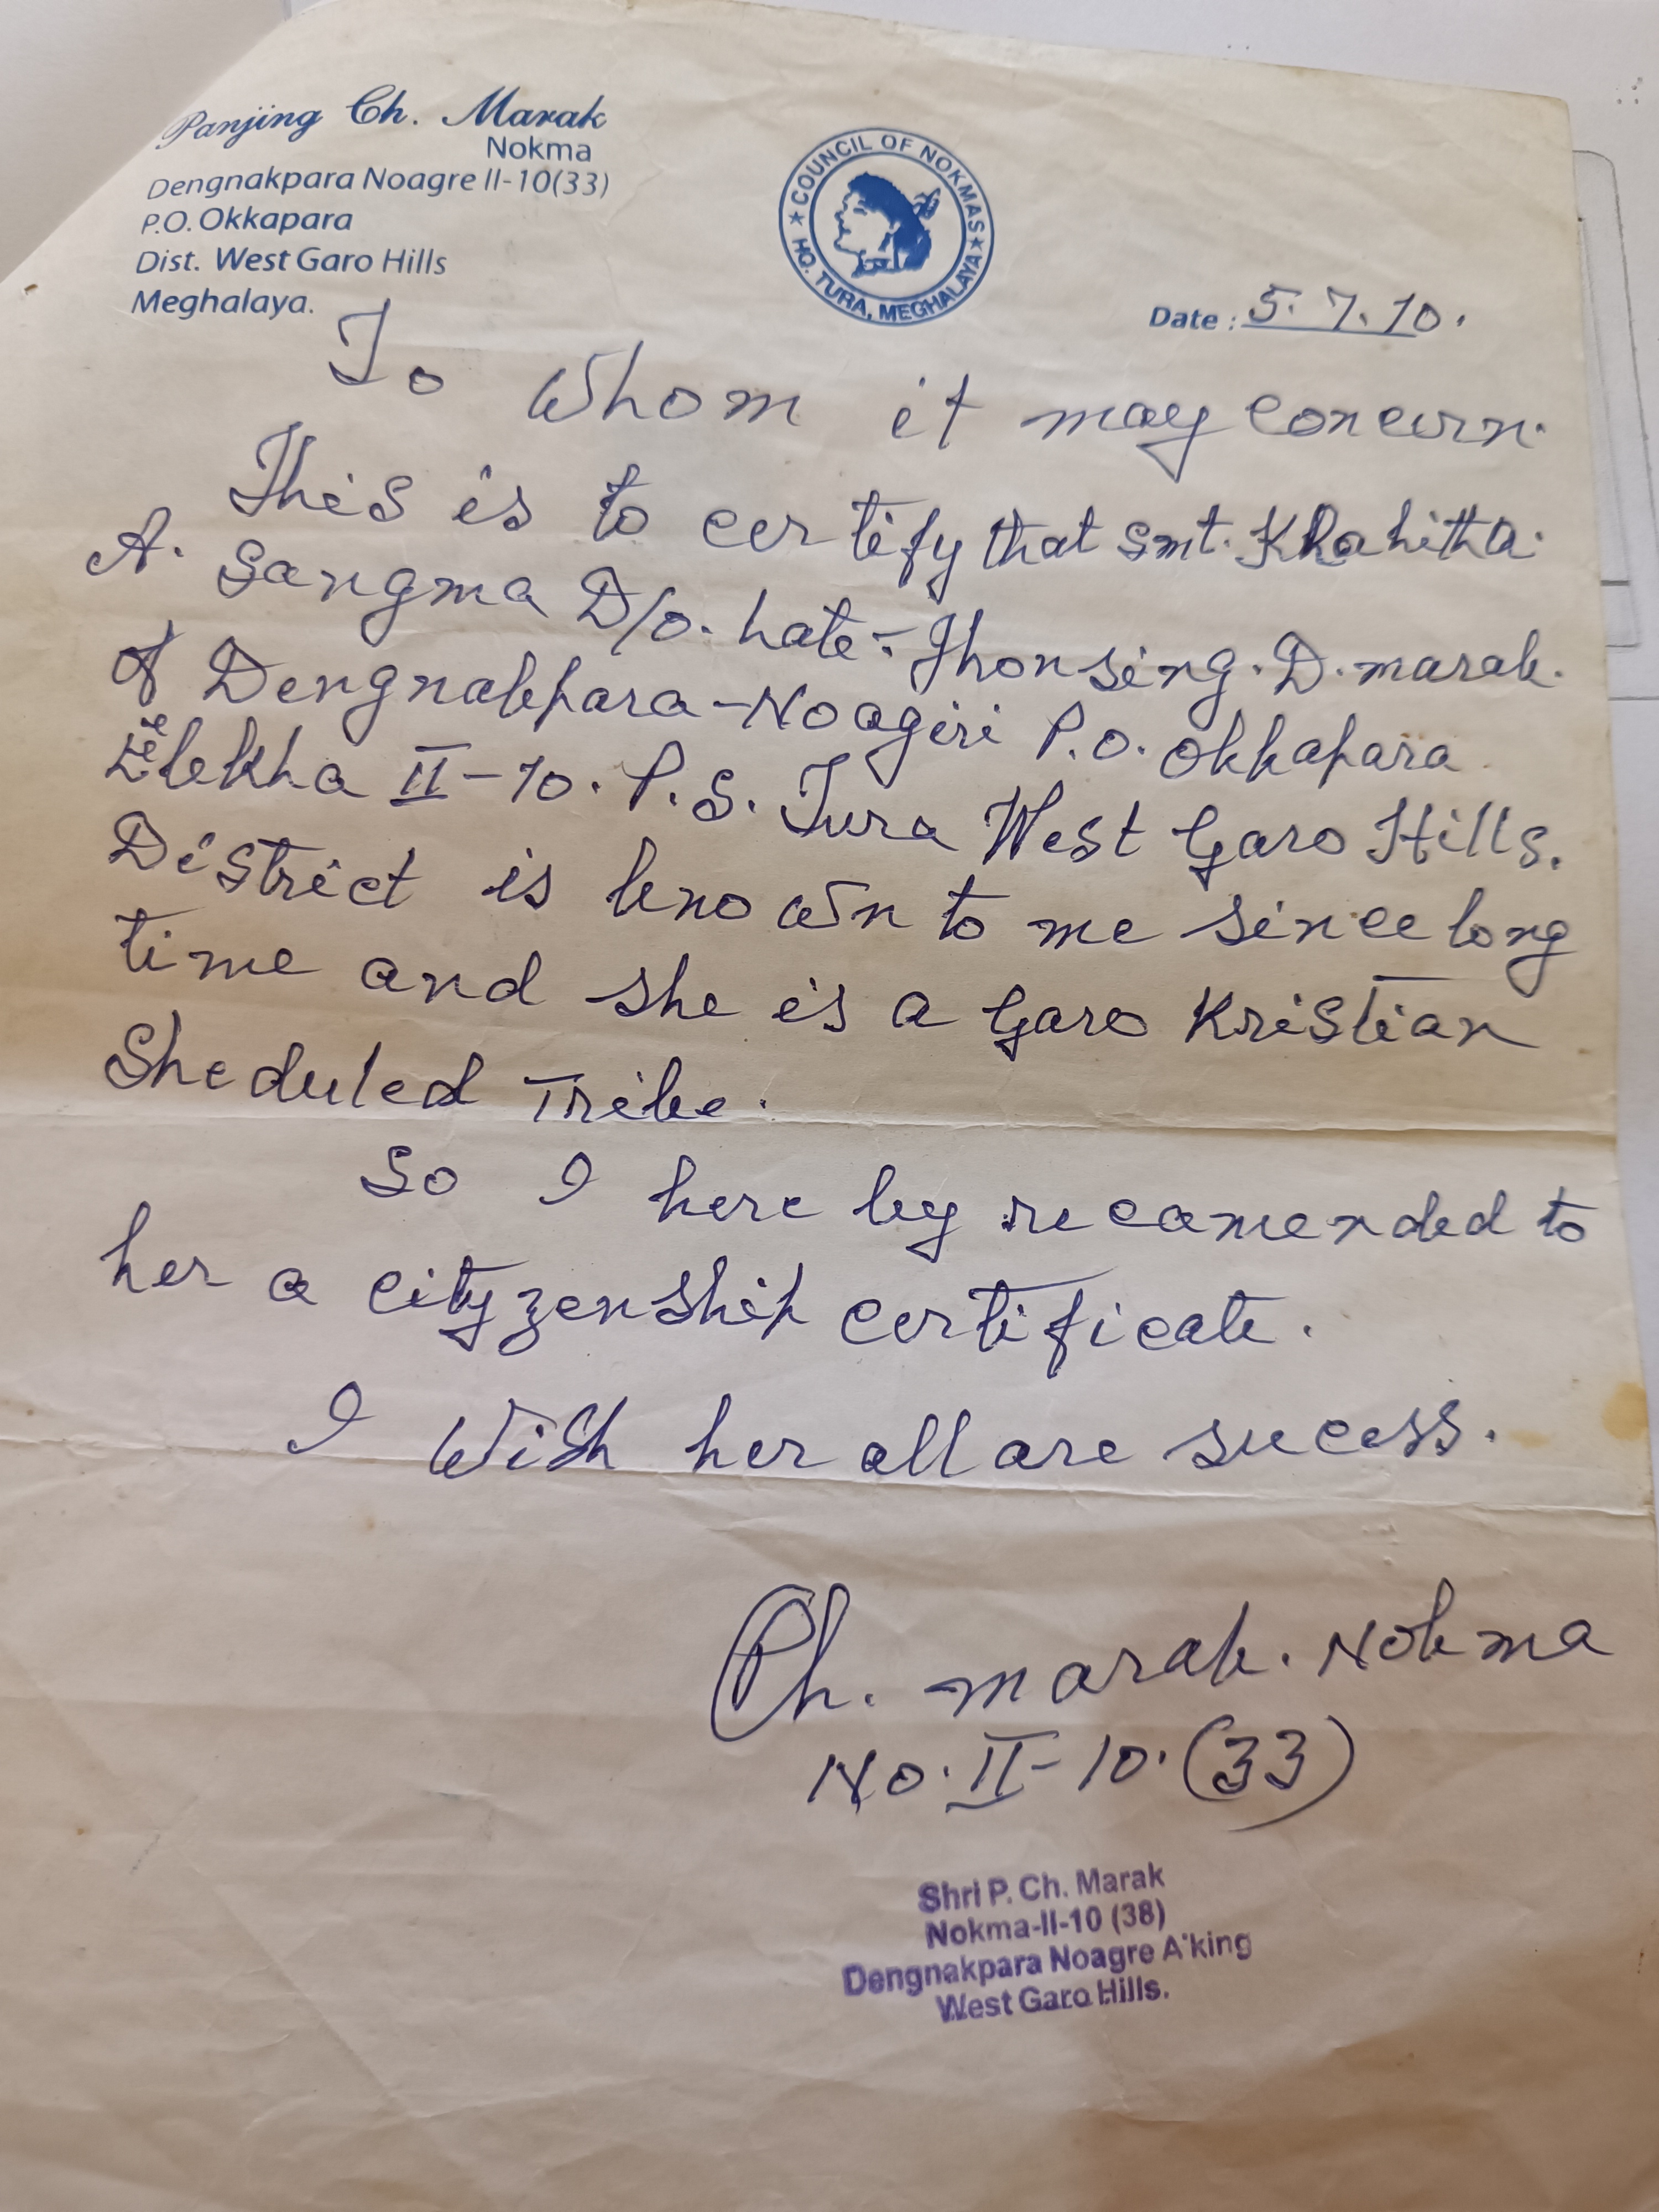 Panjing Ch. Marak
Nokma
Dengnakpara Noagre II-10(33)
P.O. Okkapara
Dist. West Garo Hills
Meghalaya.
★ COUNCIL OF NOKMAS ★ HQ. TURA, MEGHALAYA
Date : 5. 7. 10.
To whom it may concern.
This is to certify that smt. Krahitha.
A. Sangma D/o. Late:- Jhonsing. D. marak.
of Dengnakpara-Noagiri P.O. Okkapara.
Elekha II-10. P.S. Tura West Garo Hills.
District is known to me since long
time and she is a Garo Kristian
Sheduled Tribe.
So I here by recomended to
her a cityzenship certificate.
I wish her all are sucess.
Ph. marak. Nokma
No. II-10. (33)
Shri P. Ch. Marak
Nokma-II-10 (38)
Dengnakpara Noagre A'king
West Garo Hills.